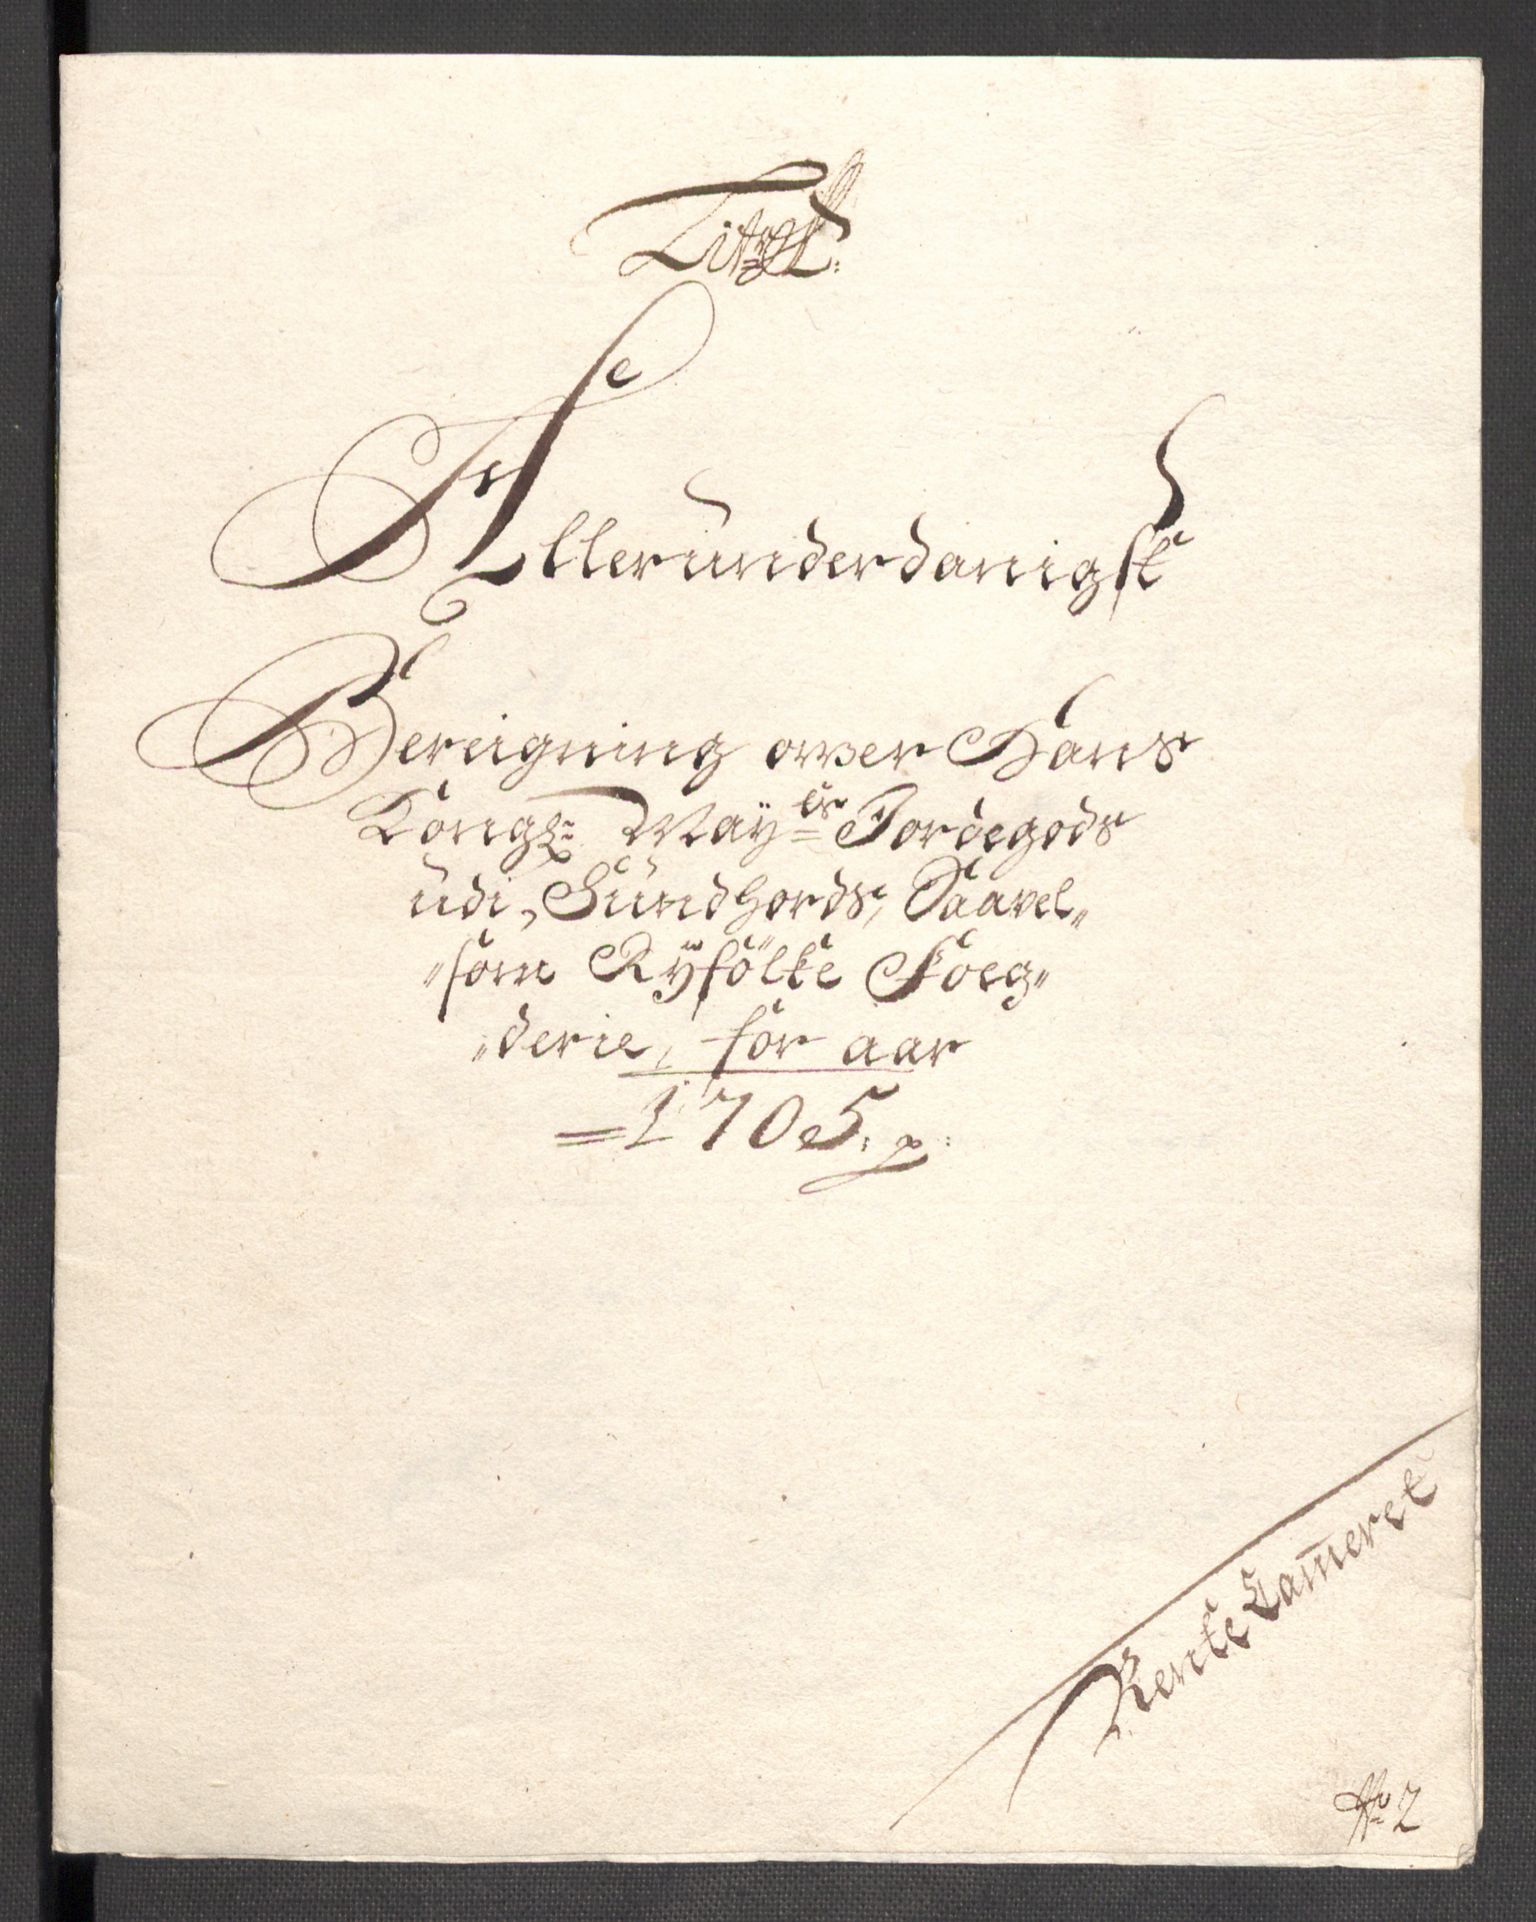 Allerunderdanigst
Bereigning ower Hans
Kongl: May:ts Jordegods
udi, Sundhords, Saavel„
„som Ryfölke Foeg„
„derie, for aar
=1705.
Rente Cam̅eret
No 2